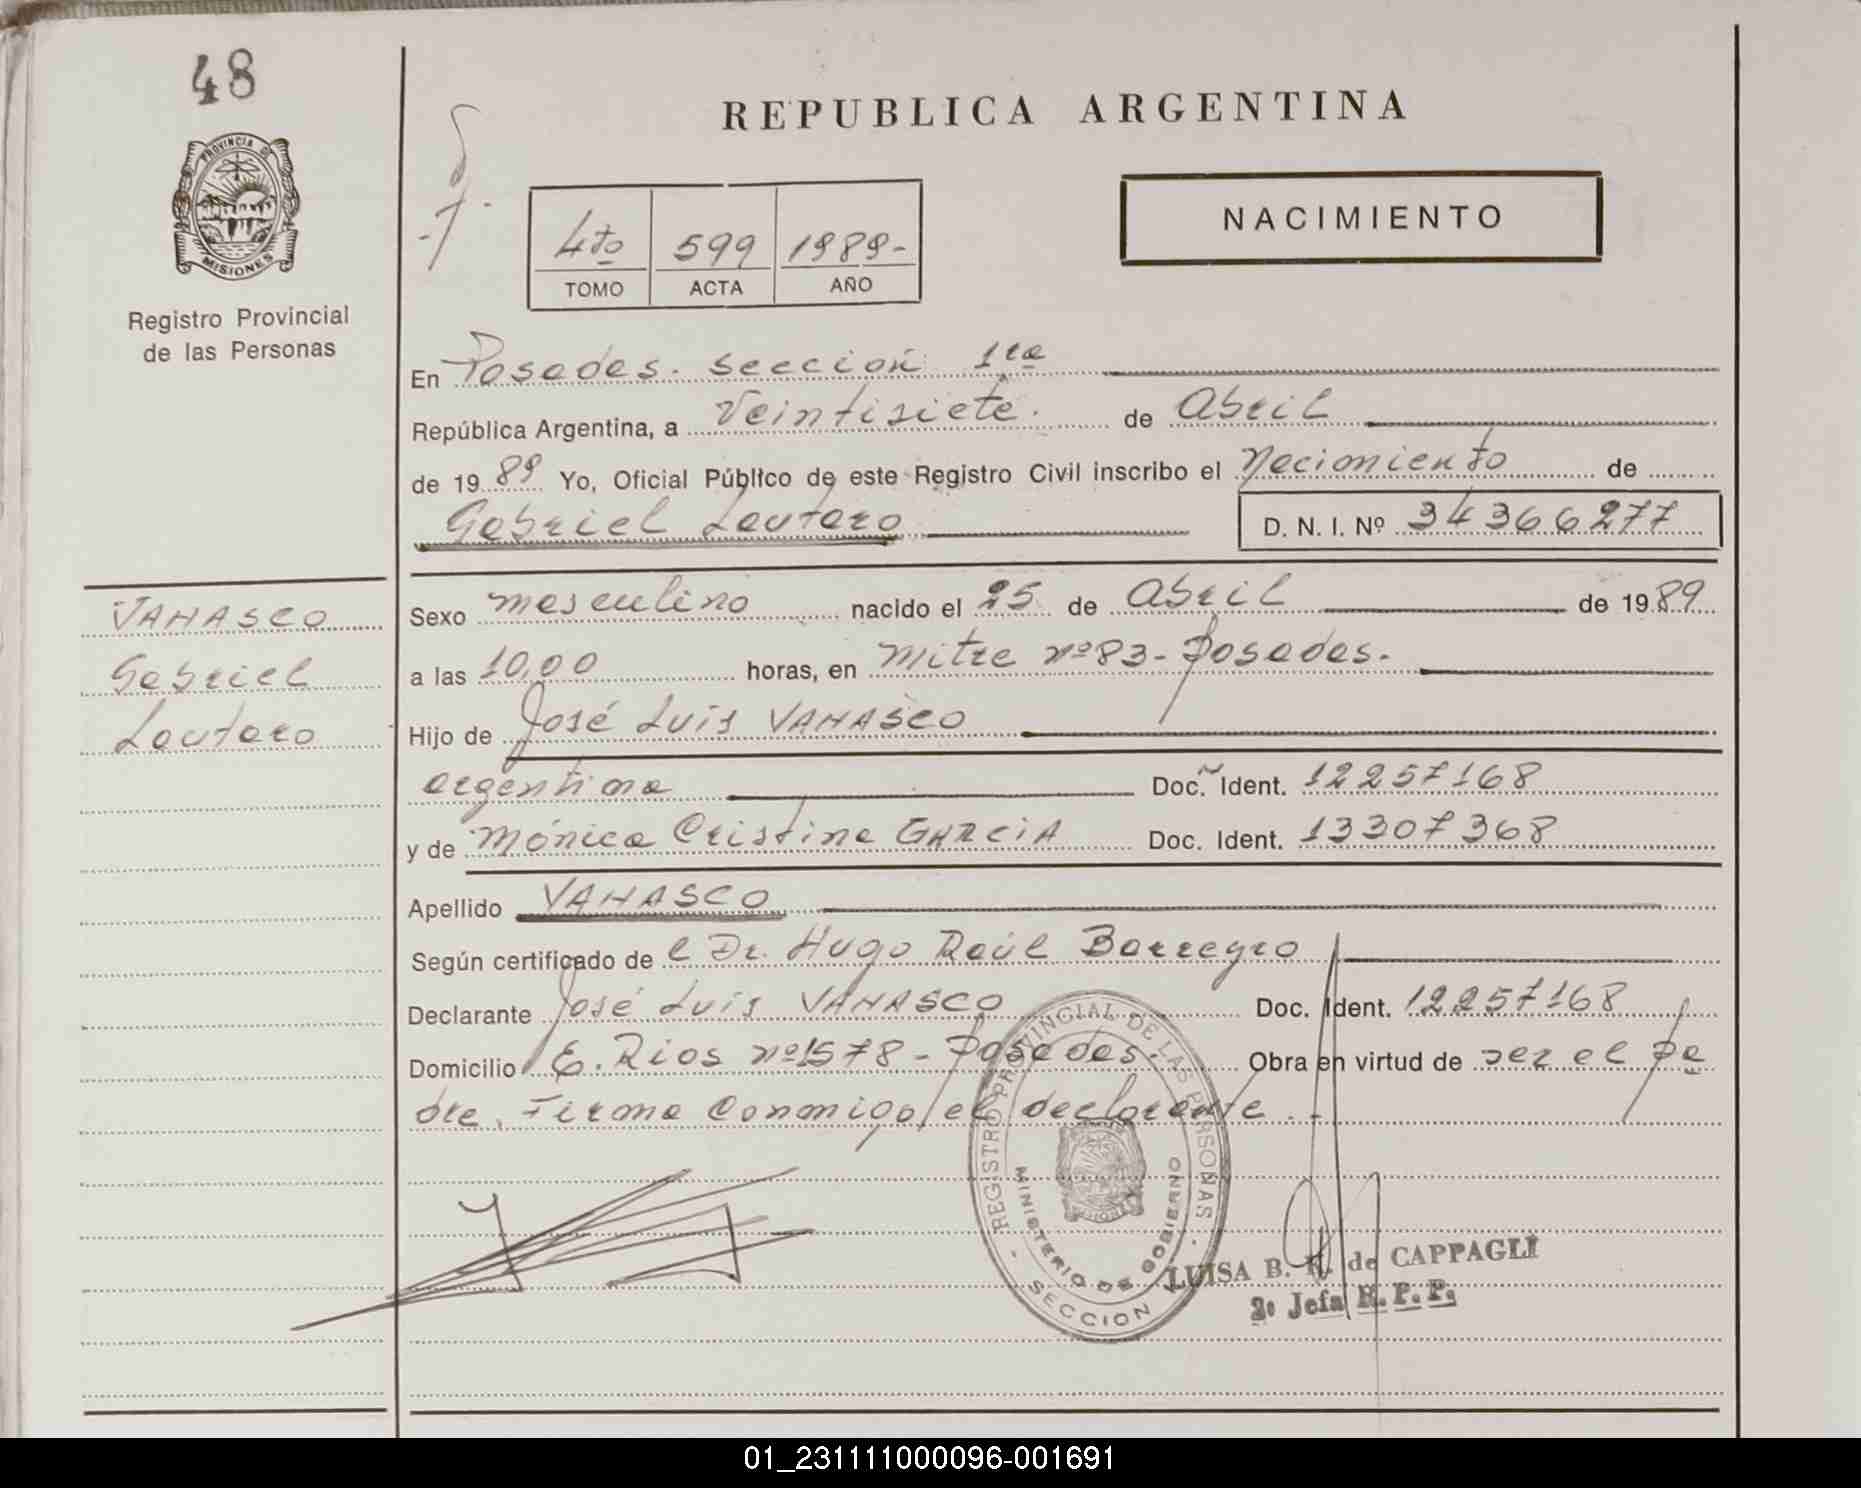 48
REPUBLICA ARGENTINA
PROVINCIA DE MISIONES
Registro Provincial
de las Personas
4to 599 1989-
TOMO ACTA AÑO
NACIMIENTO
En Posadas. sección 1ra
República Argentina, a Veintisiete. de Abril
de 1989 Yo, Oficial Público de este Registro Civil inscribo el Nacimiento de
Gabriel Lautaro D. N. I. Nº 34366277
VANASCO
Gabriel
Lautaro
Sexo masculino nacido el 25 de Abril de 1989
a las 10,00 horas, en Mitre nº 83 - Posadas.
Hijo de José Luis VANASCO
argentina Doc. Ident. 12257168
y de Mónica Cristina GARCIA Doc. Ident. 13307368
Apellido VANASCO
Según certificado de l Dr. Hugo Raúl Borregro
Declarante José Luis VANASCO Doc. Ident. 12257168
Domicilio E. Rios nº 1578 - Posadas. Obra en virtud de ser el pa
dre. Firma conmigo el declarante. -
REGISTRO PROVINCIAL DE LAS PERSONAS
MINISTERIO DE GOBIERNO
SECCION
LUISA B. de CAPPAGLI
2º Jefa R. P. P.
01_231111000096-001691